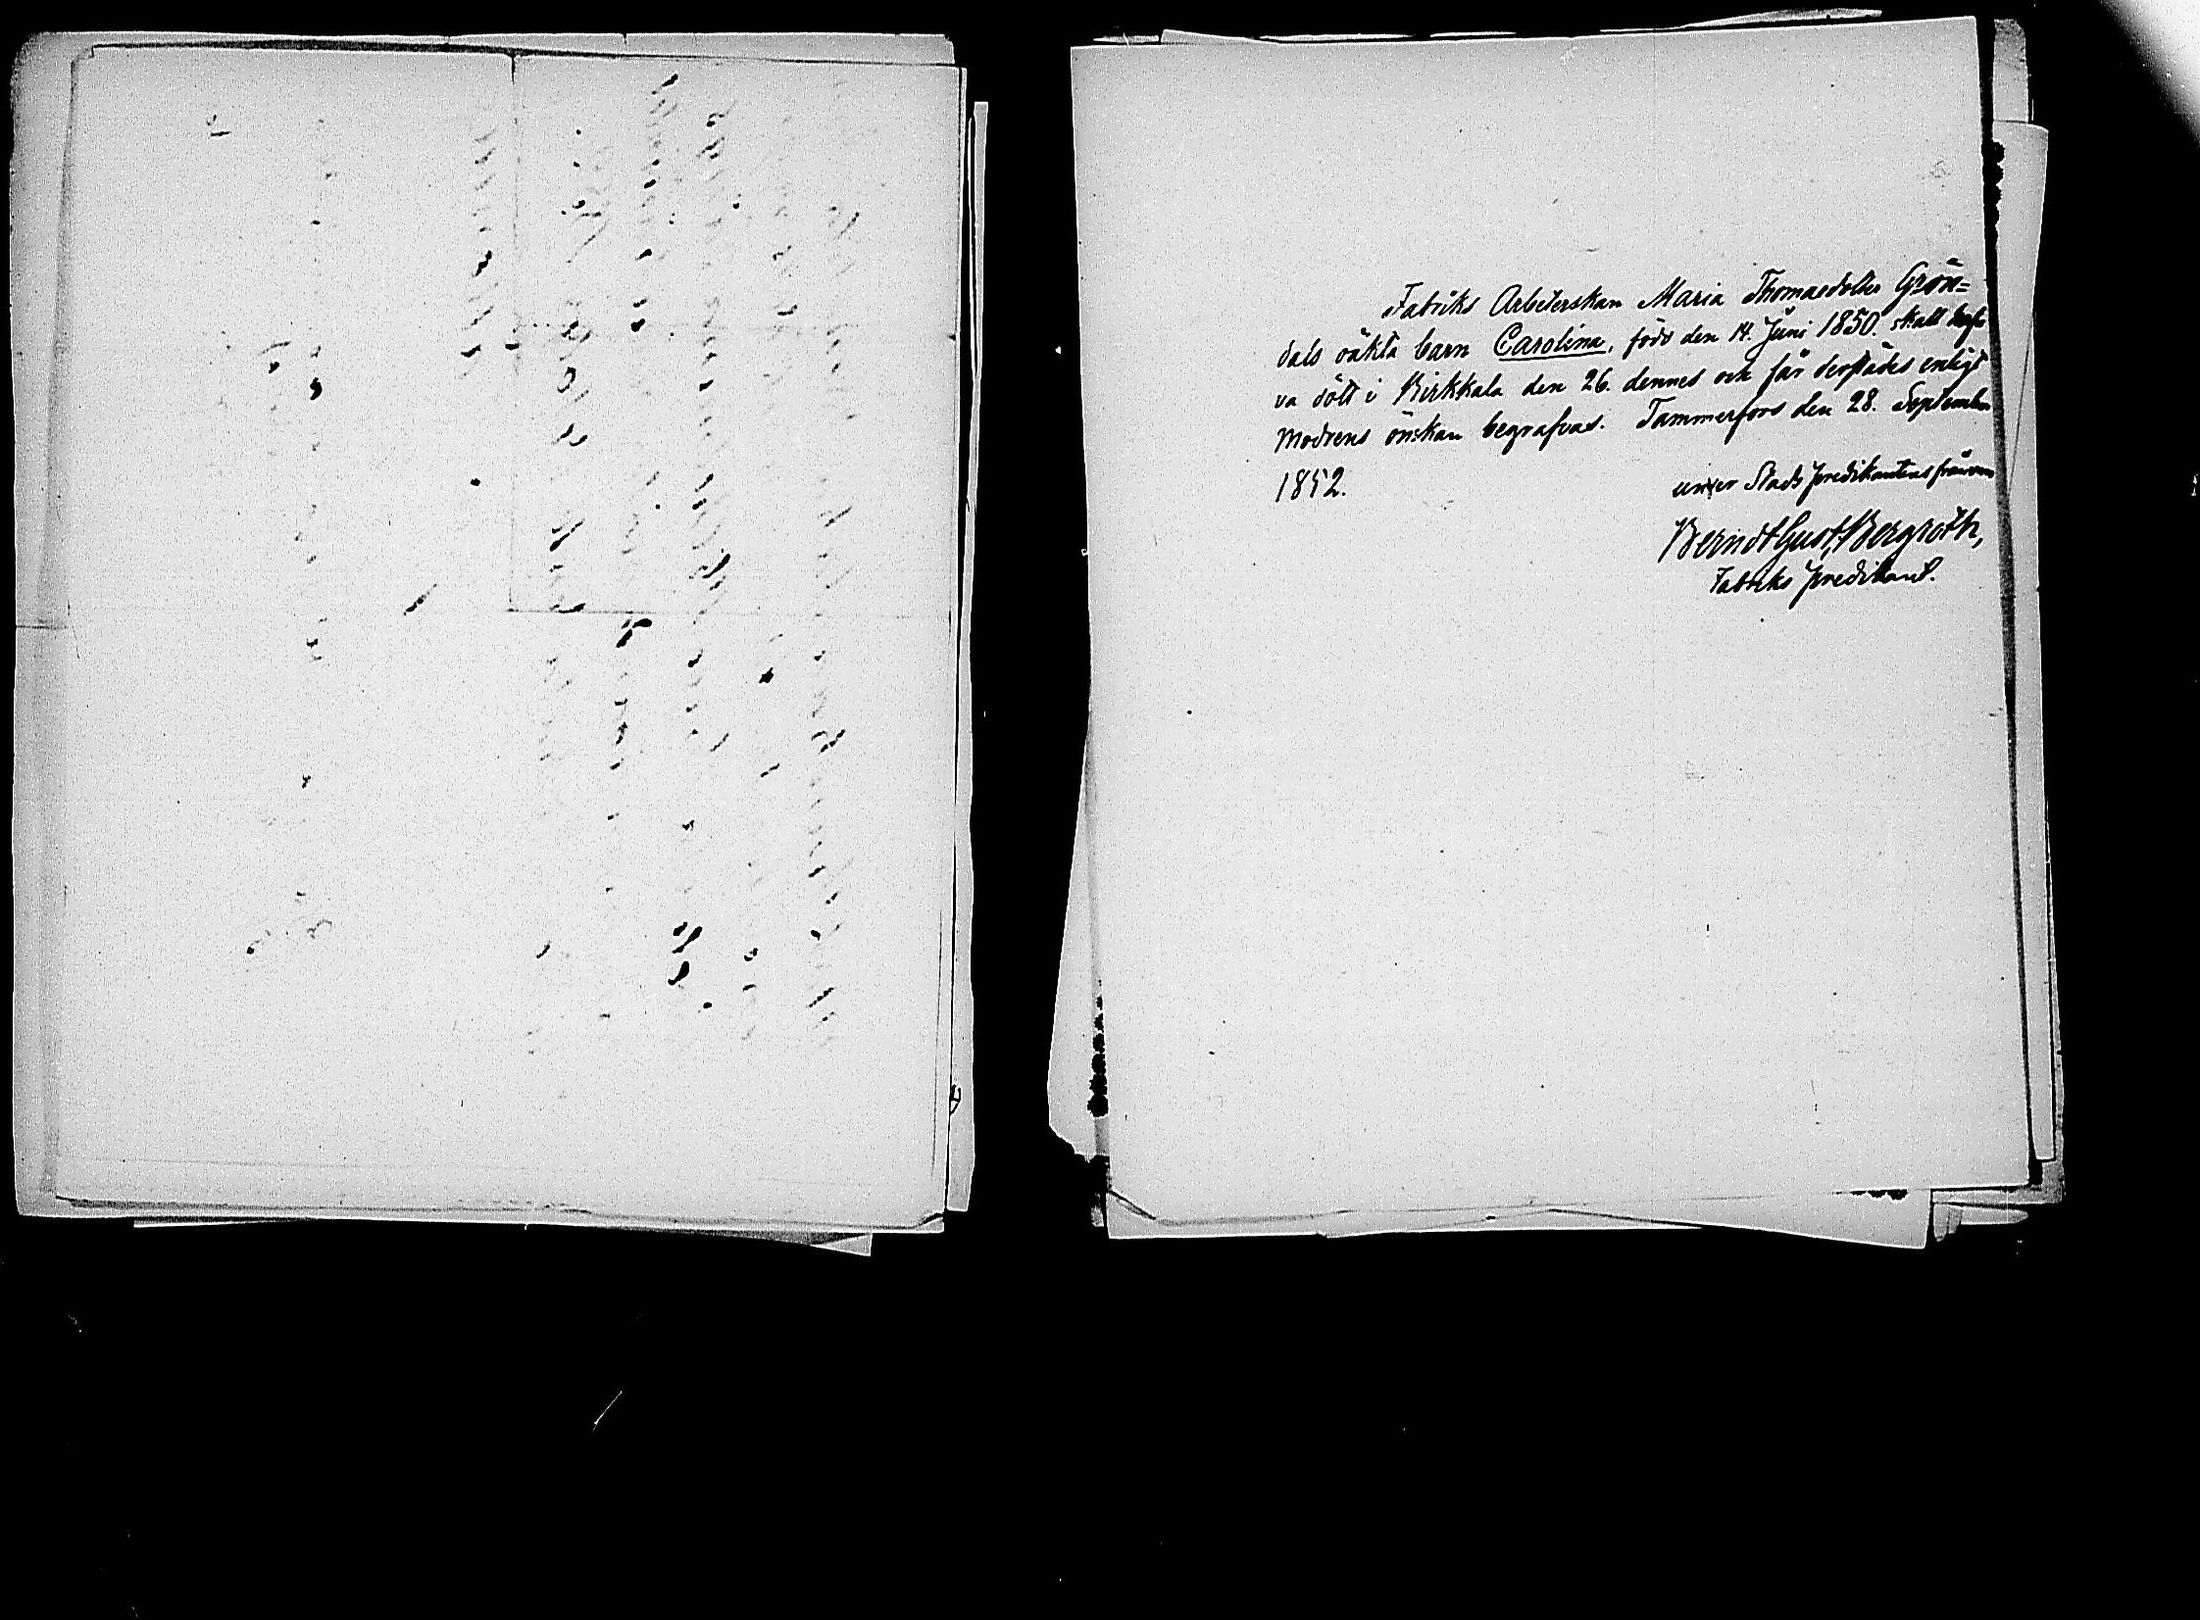 Fabriks Arbeterskan Maria Thomaedotter Grön=
dals oäkta barn Carolina, född den 14. Juni 1850. skall haf
va dött i Birkkala den 26. dennes och får derstädes enligt
modrens önskan begrafvas. Tammerfors den 28. September
1852.
under Stads predikantens frånvaro
Berndt Gust. Bergroth,
Fabriks predikant.